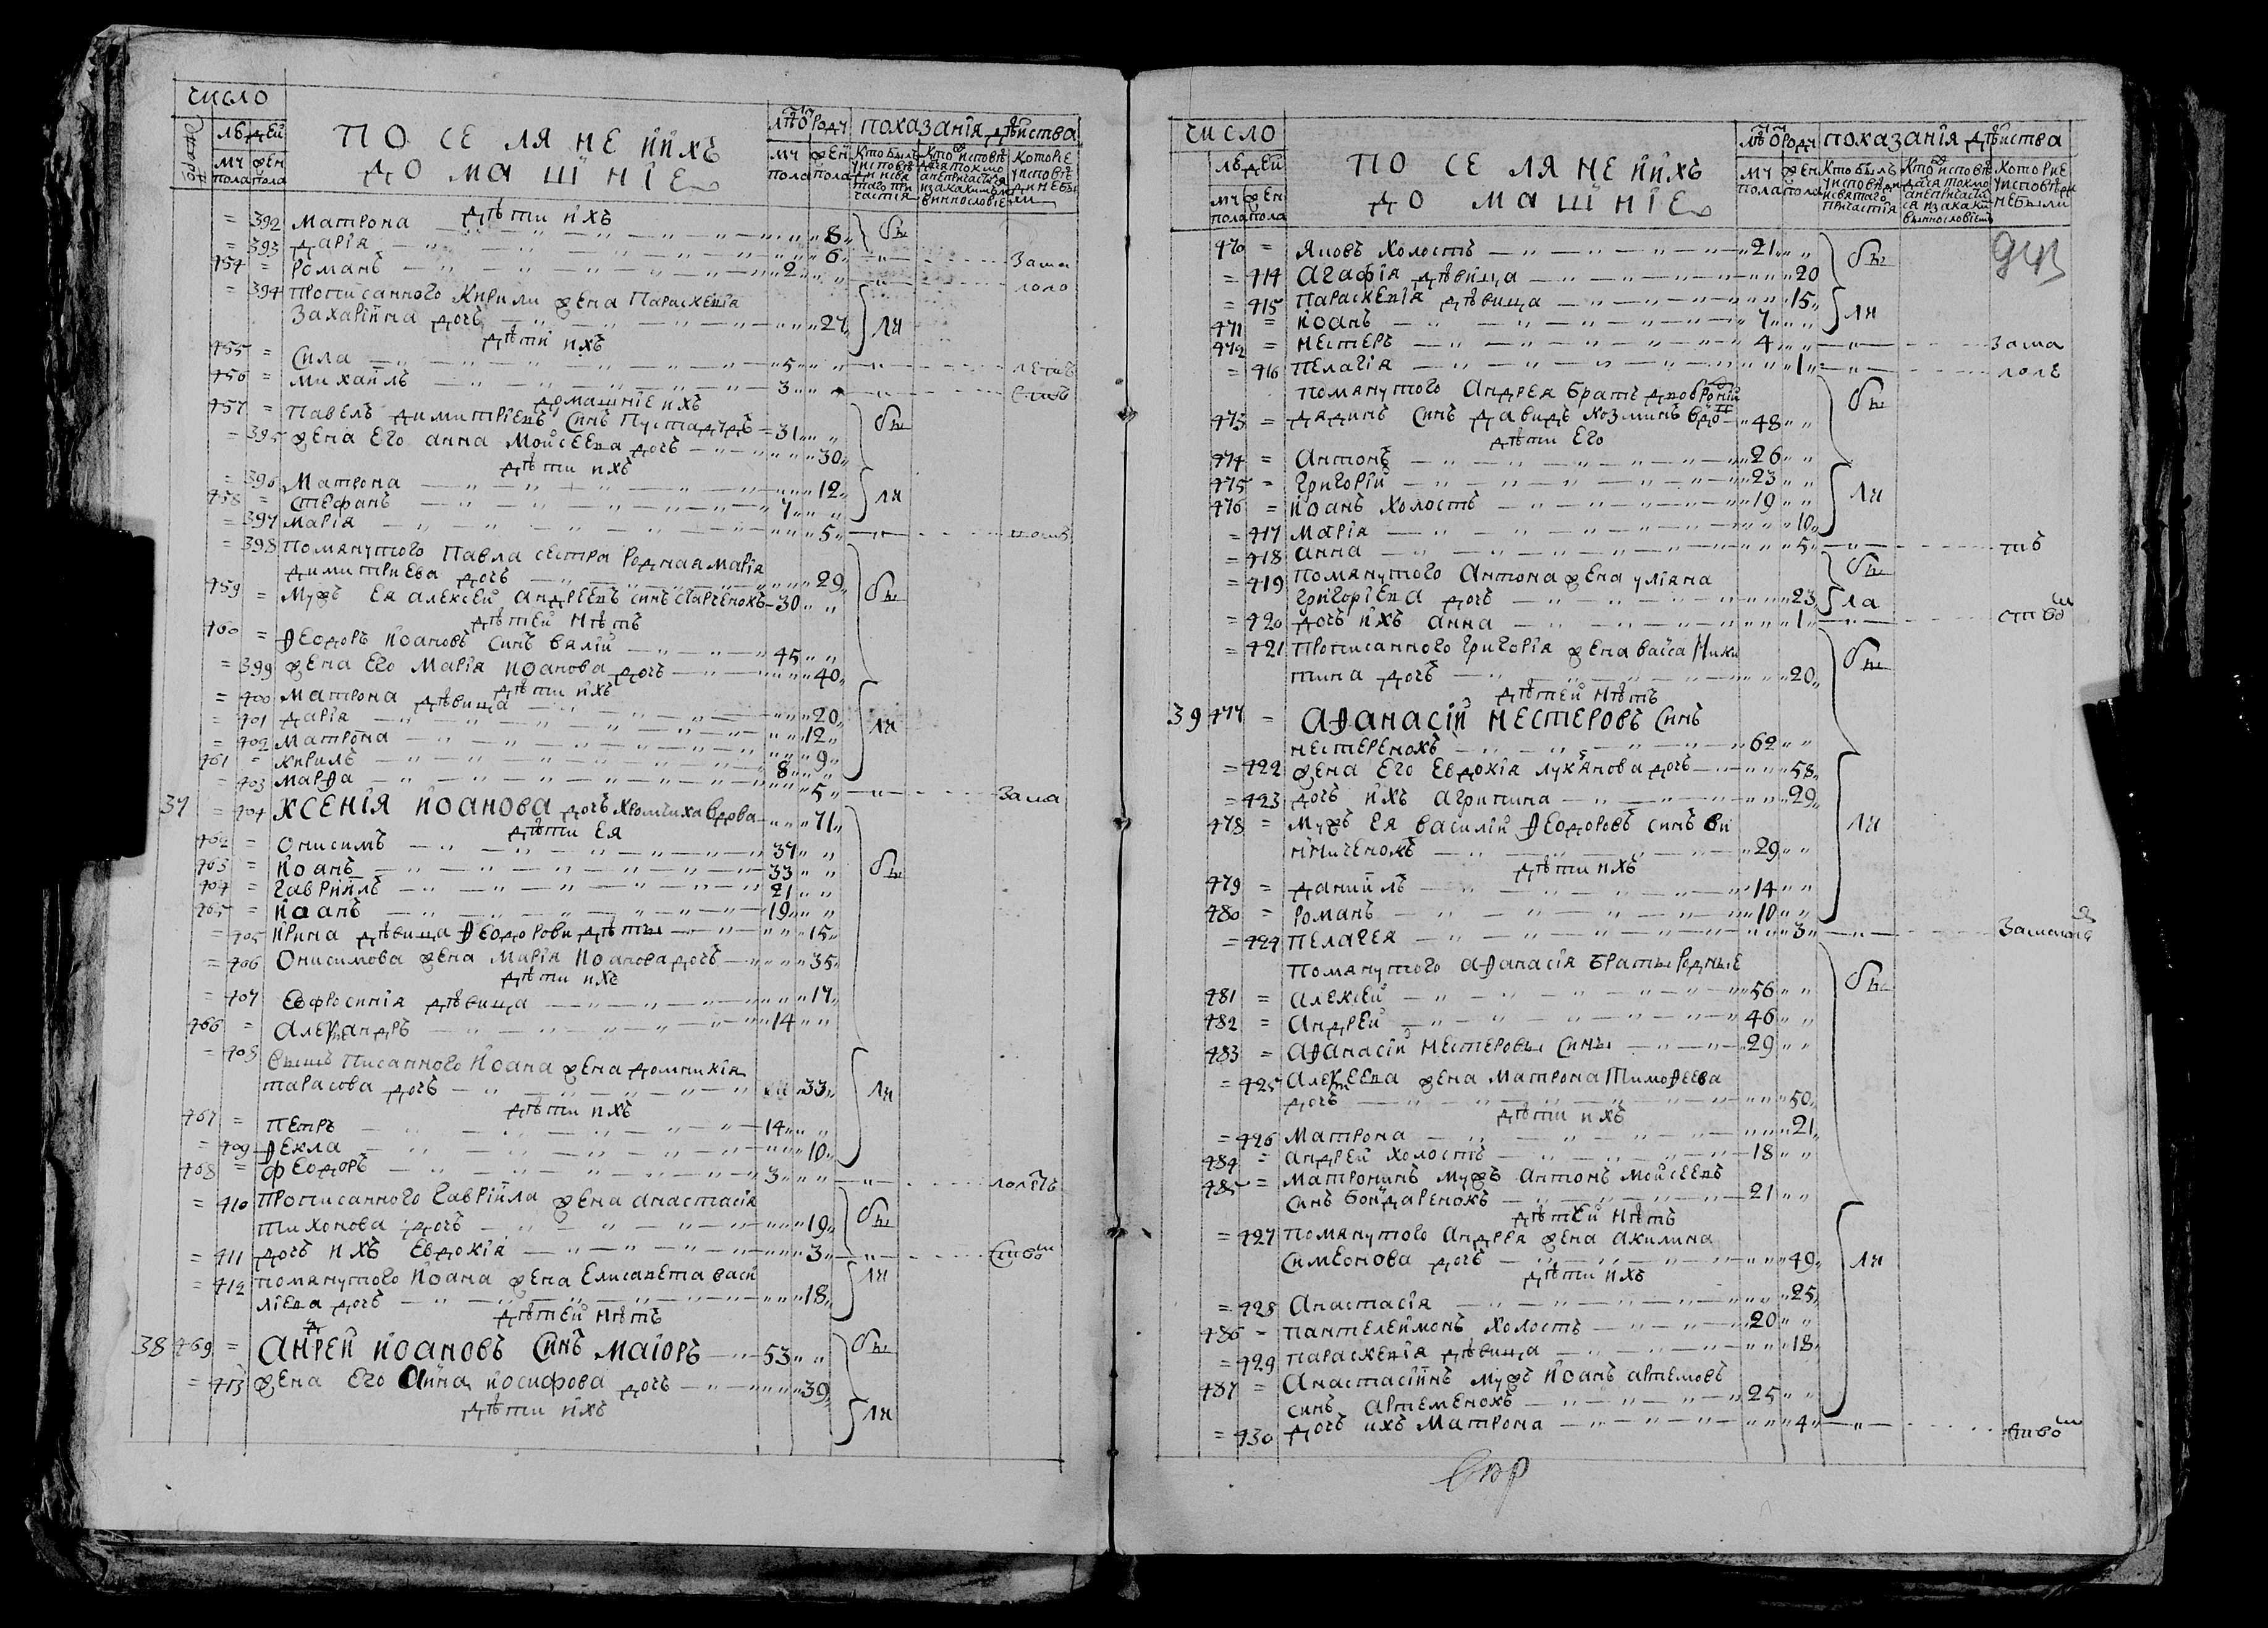 число
людей
мч пола жен пола
ПОСЕЛЯНЕ И ИХЪ
ДОМАШНІЕ
лѣто роду
мч пола жен пола
показанія дѣйства
Кто былъ у исповѣди и святаго причастія
Кто исповѣдался токмо а не причастился и за какимъ виннословіем
Которіе у исповѣди не были
дѣти ихъ
= 392 Матрона 8 бы
= 393 Дарія 6 за ма
454 = Романъ 2 лоло
= 394 прописанного Кирили жена Параскевія
Захаріина дочь 27 ли
дѣти ихъ
455 = Сила 5
456 = Михаилъ 3
домашніе ихъ
457 = Павелъ Димитріевъ синъ 31 бы
= 395 жена его Анна Мойсеева дочь 30
дѣти ихъ
= 396 Матрона 12 ли
458 = Стефанъ 7
= 397 Марія 5
= 398 помянутого Павла сестра родная Марія
Димитриева дочь 29 бы
459 = Мужъ ея Алексей Андреевъ синъ 30
дѣтей нѣтъ
460 = Ѳеодоръ Иоановъ синъ Бялій 45
= 399 жена его Марія Иоанова дочь 40
дѣти ихъ
= 400 Матрона дѣвица 20 ли
= 401 Дарія 12
= 402 Матрона 9
461 = Кирилъ 8
= 403 Марѳа 5 за ма
37 = 404 КСЕНІЯ ИОАНОВА дочь Хромчиха вдова 71
дѣти ея
462 = Онисимъ 37
463 = Иоанъ 33 бы
464 = Гавриилъ 21
465 = Иоанъ 19
= 405 Ирина дѣвица Ѳеодорови дѣти 15
= 406 Онисимова жена Марія Иоанова дочь 35
дѣти ихъ
= 407 Евфросинія дѣвица 17
466 = Александръ 14
= 408 вышъ писанного Иоана жена Домникія
Тарасова дочь 33 ли
дѣти ихъ
467 = Петръ 14
= 409 Ѳекла 10
468 = Феодоръ 3
= 410 прописанного Гавріила жена Анастасія
Тихонова дочь 19 бы
= 411 дочь ихъ Евдокія 3
= 412 помянутого Иоана жена Елисавета Васи
ліева дочь 18 ли
дѣтей нѣтъ
38 469 = АНДРЕЙ ИОАНОВЪ синъ МАІОРЪ 53 бы
= 413 жена его Анна Иосифова дочь 39 ли
дѣти ихъ
число
людей
мч пола жен пола
ПОСЕЛЯНЕ И ИХЪ
ДОМАШНІЕ
лѣто роду
мч пола жен пола
показанія дѣйства
Кто былъ у исповѣди и святаго причастія
Кто исповѣдался токмо а не причастился и за какимъ виннословіемъ
Которие у исповѣди не были
470 = Яковъ холостъ 21 бы
= 414 Агафія дѣвица 20
= 415 Параскевія дѣвица 15 ли
471 = Иоанъ 7
472 = Нестеръ 4 за ма
= 416 Пелагія 1 лолѣ
помянутого Андрея братъ двоюродній
473 = дядинъ синъ Давидъ Козминъ вдо 48 бы
дѣти его
474 = Антонъ 26
475 = Григорій 23 ли
476 = Иоанъ холостъ 19
= 417 Марія 10
= 418 Анна 5
= 419 помянутого Антона жена Уліяна бы
Григоріева дочь 23 ла
= 420 дочь ихъ Анна 1
= 421 прописанного Григорія жена Васса Ники
тина дочь 20 бы
дѣтей нѣтъ
39 477 = АѲАНАСІЙ НЕСТЕРОВЪ синъ
Нестеренокъ 62
= 422 жена его Евдокія Лукянова дочь 58
= 423 дочь ихъ Агрипина 29
478 = мужъ ея Василій Ѳеодоровъ синъ Ви
нниченокъ 29 ли
дѣти ихъ
479 = Даниилъ 14
480 = Романъ 10
= 424 Пелагея 3
помянутого Аѳанасія браты родные
481 = Алексей 56 бы
482 = Андрей 46
483 = Аѳанасій Нестеровы сины 29
= 425 Алексеева жена Матрона Тимоѳеева
дочь 50
дѣти ихъ
= 426 Матрона 21
484 = Андрей холостъ 18
485 = Матронинъ мужъ Антонъ Мойсеевъ
синъ Бондаренокъ 21
дѣтей нѣтъ
= 427 помянутого Андрея жена Акилина
Симеонова дочь 49 ли
дѣти ихъ
= 428 Анастасія 25
486 = Пантелеймонъ холостъ 20
= 429 Параскевія дѣвица 18
487 = Анастасіинъ мужъ Иоанъ Артемовъ
синъ Артеменокъ 25
= 430 дочь ихъ Матрона 4